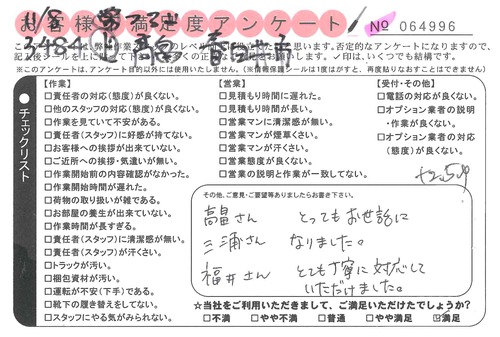 お客様満足度アンケート
No 064996
※このアンケートは、アンケート目的以外には使用いたしません。（※情報保護シールは1度はがすと、再度貼りなおすことはできません）
チェックリスト
【作業】
□責任者の対応（態度）が良くない。
□他のスタッフの対応（態度）が良くない。
□作業を見ていて不安がある。
□責任者（スタッフ）に好感が持てない。
□お客様への挨拶が出来ていない。
□ご近所への挨拶・気遣いが無い。
□作業開始前の内容確認がなかった。
□作業開始時間が遅れた。
□荷物の取り扱いが雑である。
□お部屋の養生が出来ていない。
□作業時間が長すぎる。
□責任者（スタッフ）に清潔感が無い。
□責任者（スタッフ）が汗くさい。
□トラックが汚い。
□梱包資材が汚い。
□運転が不安（下手）である。
□靴下の履き替えをしてない。
□スタッフにやる気がみられない。
【営業】
□見積もり時間に遅れた。
□見積もり時間が長い。
□営業マンに清潔感が無い。
□営業マンが煙草くさい。
□営業マンが汗くさい。
□営業態度が良くない。
□営業の説明と作業が一致してない。
【受付・その他】
□電話の対応が良くない。
□オプション業者の説明・作業が良くない。
□オプション業者の対応（態度）が良くない。
その他、ご意見・ご要望等ありましたらお書き下さい。
高畠さん とってもお世話に
三浦さん なりました。
福井さん とても丁寧に対応して
いただけました。
☆当社をご利用いただきまして、ご満足いただけたでしょうか？
□不満 □やや不満 □普通 □やや満足 ☑満足